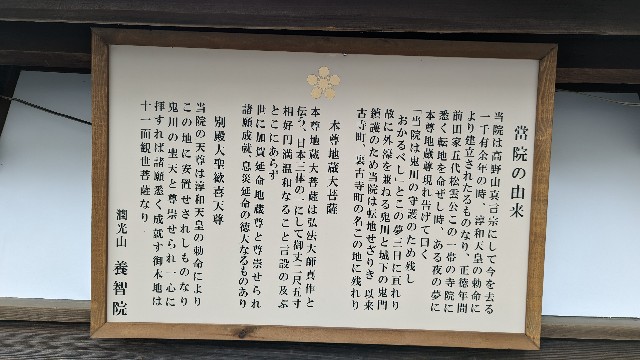 當院の由来
当院は高野山真言宗にして今を去る
一千有余年の時、淳和天皇の勅命に
より建立されたるものなり、正徳年間
前田家五代松雲公この一帯の寺院に
悉く転地を命ぜし時、ある夜の夢に
本尊地蔵尊現れ告げて曰く
「当院は鬼川の守護のため残し
おかるべし」とこの夢三日に亙れり
故に外濠を兼ねる鬼川と城下の鬼門
鎮護のため当院は転地せざりき 以来
古寺町、裏古寺町の名この地に残れり
本尊地蔵大菩薩
本尊地蔵大菩薩は弘法大師真作と
伝へ、日本三体の一にして御丈二尺五寸
相好円満温和なること言説の及ぶ
とこにあらず
世に加賀延命地蔵尊と尊崇せられ
諸願成就、息災延命の徳大なるものあり
別殿大聖歓喜天尊
当院の天尊は淳和天皇の勅命により
この地に安置せされしものなり
鬼川の聖天と尊崇せられ一心に
拝すれば諸願悉く成就す御本地は
十一面観世音菩薩なり
潤光山 養智院